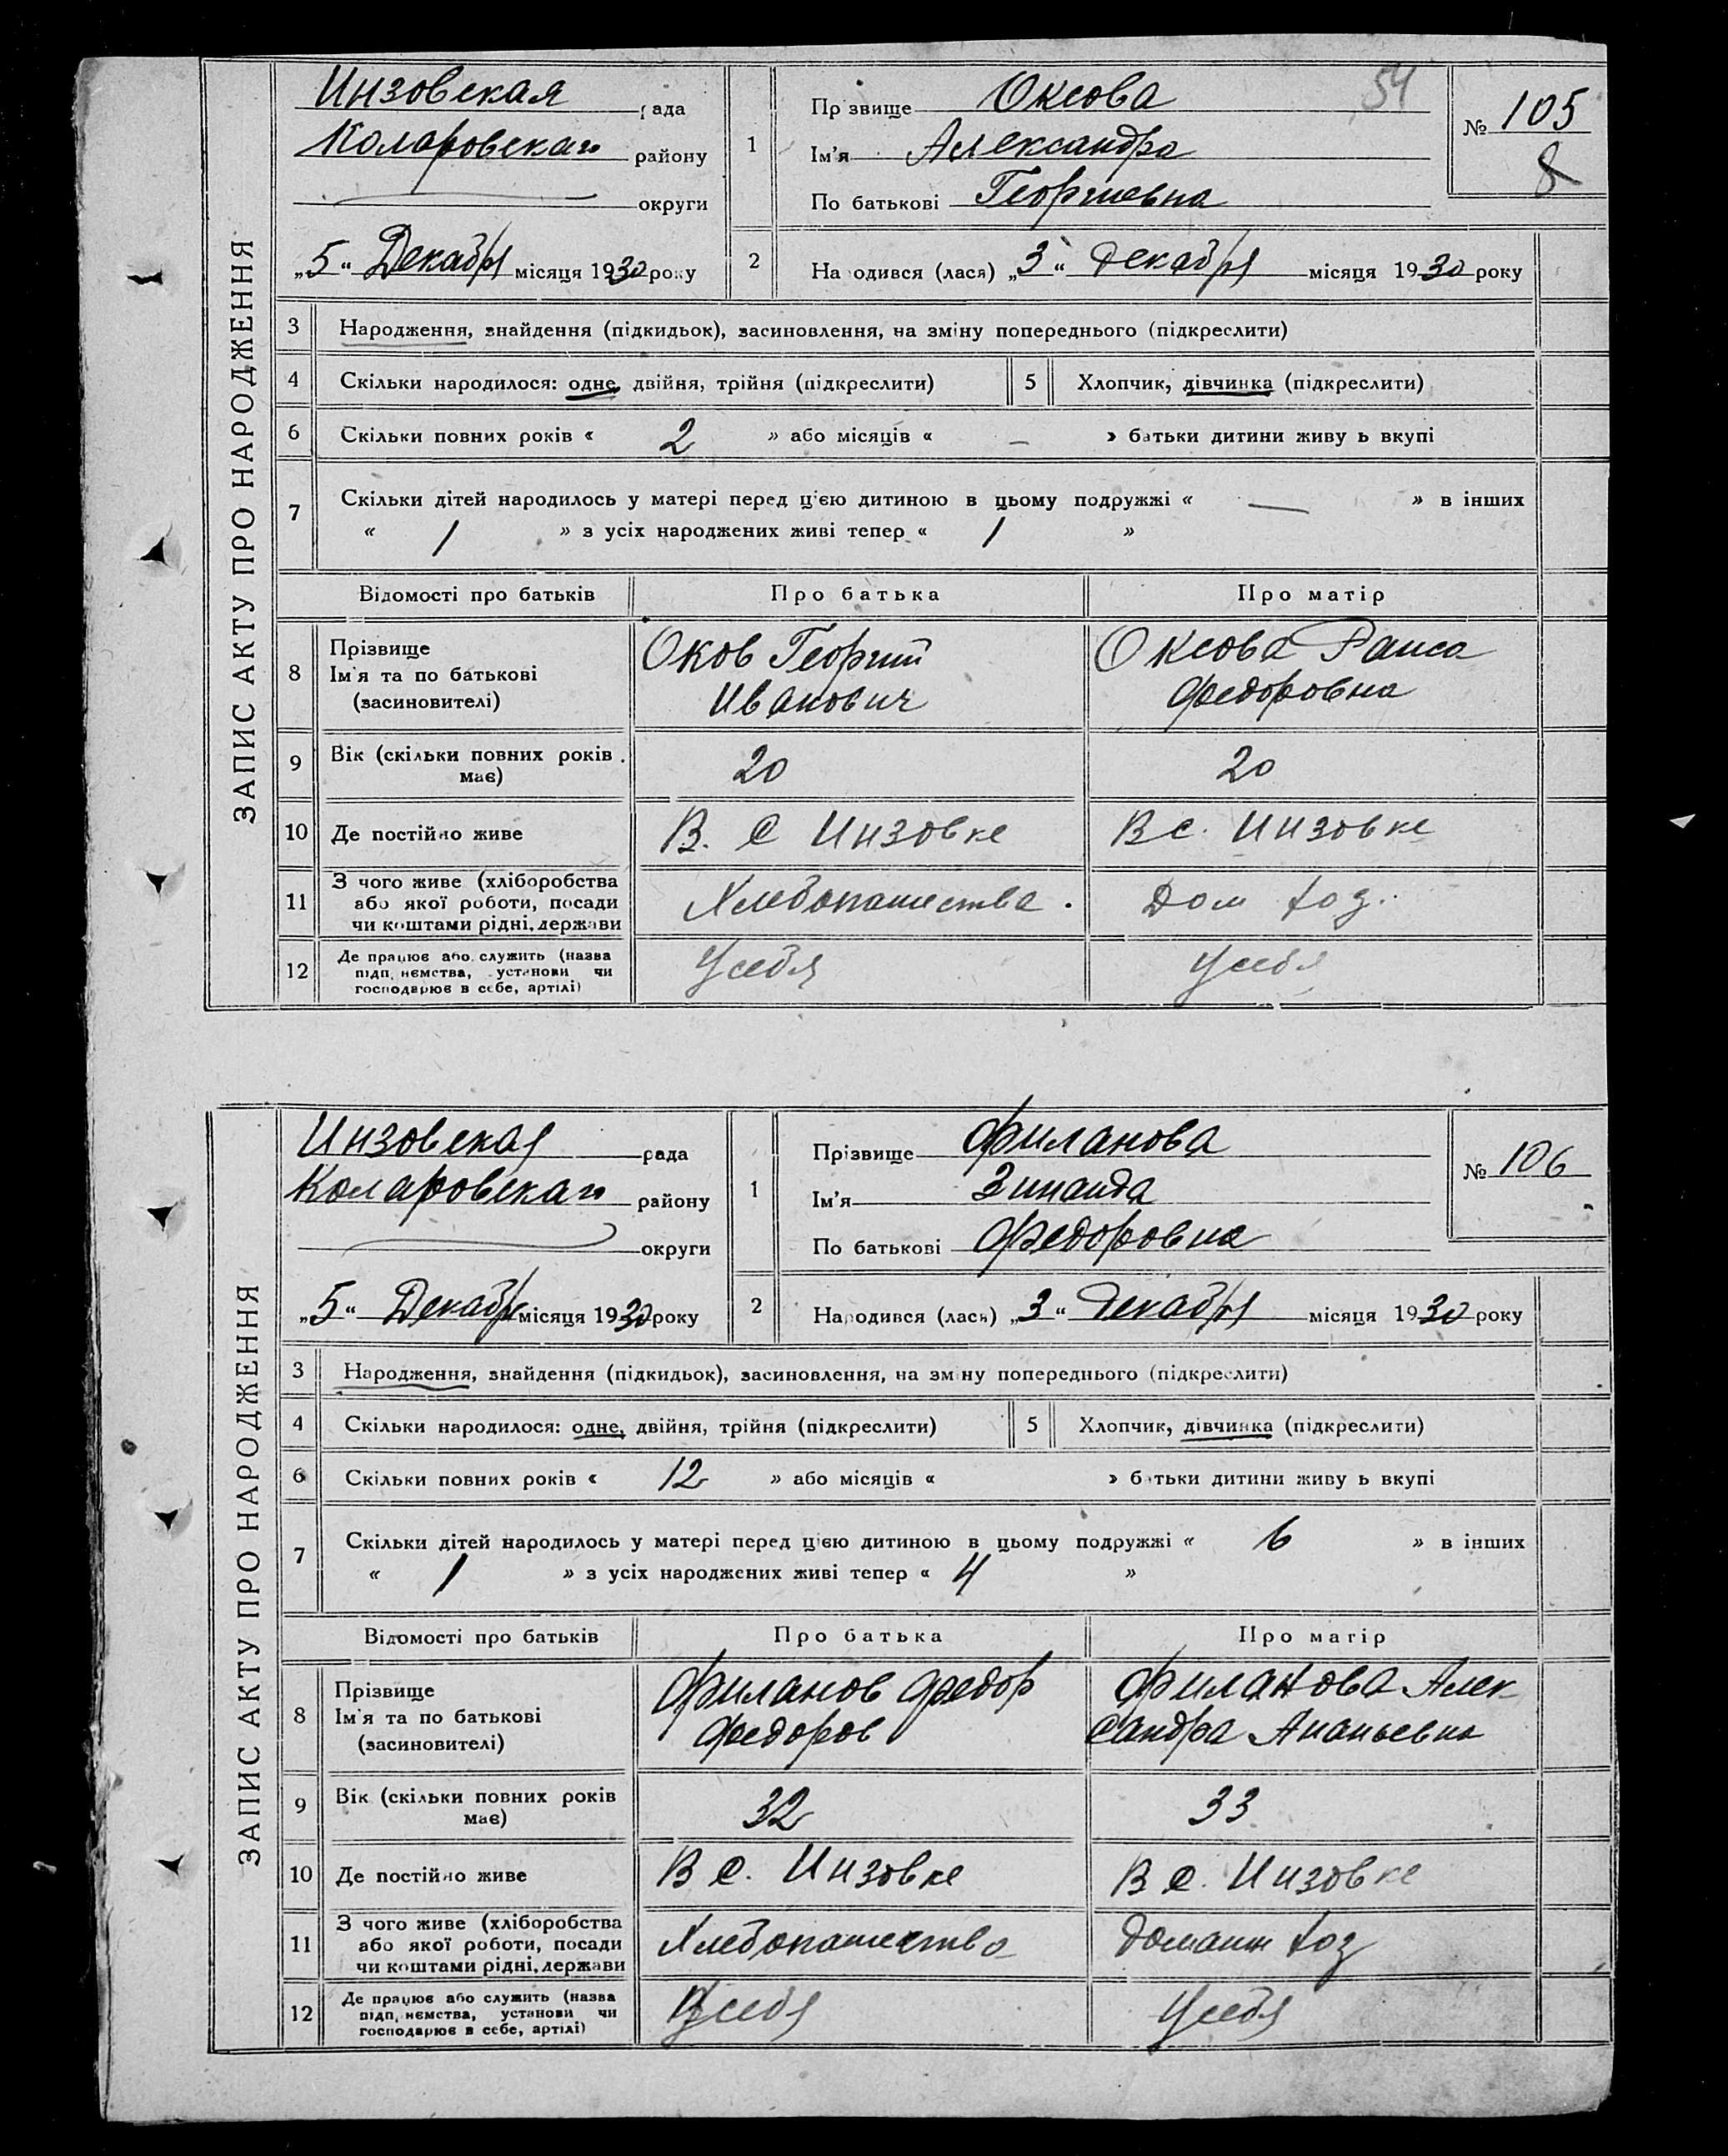 ЗАПИС АКТУ ПРО НАРОДЖЕННЯ
Инзовская рада
Коларовскаго району
округи
„5“ Декабря місяця 1930 року
1
Прізвище Оксова
54
Ім'я Александра
По батькові Георгиевна
№ 105
8
2
Народився (лася) „3“ Декабря місяця 1930 року
3 Народження, знайдення (підкидьок), засиновлення, на зміну попереднього (підкреслити)
4 Скільки народилося: одне, двійня, трійня (підкреслити) 5 Хлопчик, дівчинка (підкреслити)
6 Скільки повних років « 2 » або місяців « – » батьки дитини живу ь вкупі
7 Скільки дітей народилось у матері перед цією дитиною в цьому подружжі « — » в інших
« 1 » з усіх народжених живі тепер « 1 »
Відомості про батьків Про батька Про матір
8 Прізвище
Ім'я та по батькові
(засиновителі)
Оков Георгий
Иванович
Оксова Раиса
Федоровна
9 Вік (скільки повних років
має)
20 20
10 Де постійно живе В. С Инзовке В с. Инзовке
11 З чого живе (хліборобства
або якої роботи, посади
чи коштами рідні, держави
Хлебопашества. Дом хоз.
12 Де працює або служить (назва
підприємства, установи чи
господарює в себе, артілі)
У себя У себя
ЗАПИС АКТУ ПРО НАРОДЖЕННЯ
Инзовская рада
Коларовскаго району
округи
„5“ Декабря місяця 1930 року
1
Прізвище Филанова
Ім'я Зинаида
По батькові Федоровна
№ 106
2
Народився (лася) „3“ Декабря місяця 1930 року
3 Народження, знайдення (підкидьок), засиновлення, на зміну попереднього (підкреслити)
4 Скільки народилося: одне, двійня, трійня (підкреслити) 5 Хлопчик, дівчинка (підкреслити)
6 Скільки повних років « 12 » або місяців « » батьки дитини живу ь вкупі
7 Скільки дітей народилось у матері перед цією дитиною в цьому подружжі « 6 » в інших
« 1 » з усіх народжених живі тепер « 4 »
Відомості про батьків Про батька Про матір
8 Прізвище
Ім'я та по батькові
(засиновителі)
Филанов Федор
Федоров
Филанова Алек-
сандра Ананьевна
9 Вік (скільки повних років
має)
32 33
10 Де постійно живе В с. Инзовке В с. Инзовке
11 З чого живе (хліборобства
або якої роботи, посади
чи коштами рідні, держави
Хлебопашество Домашн хоз
12 Де працює або служить (назва
підприємства, установи чи
господарює в себе, артілі)
У себя У себя